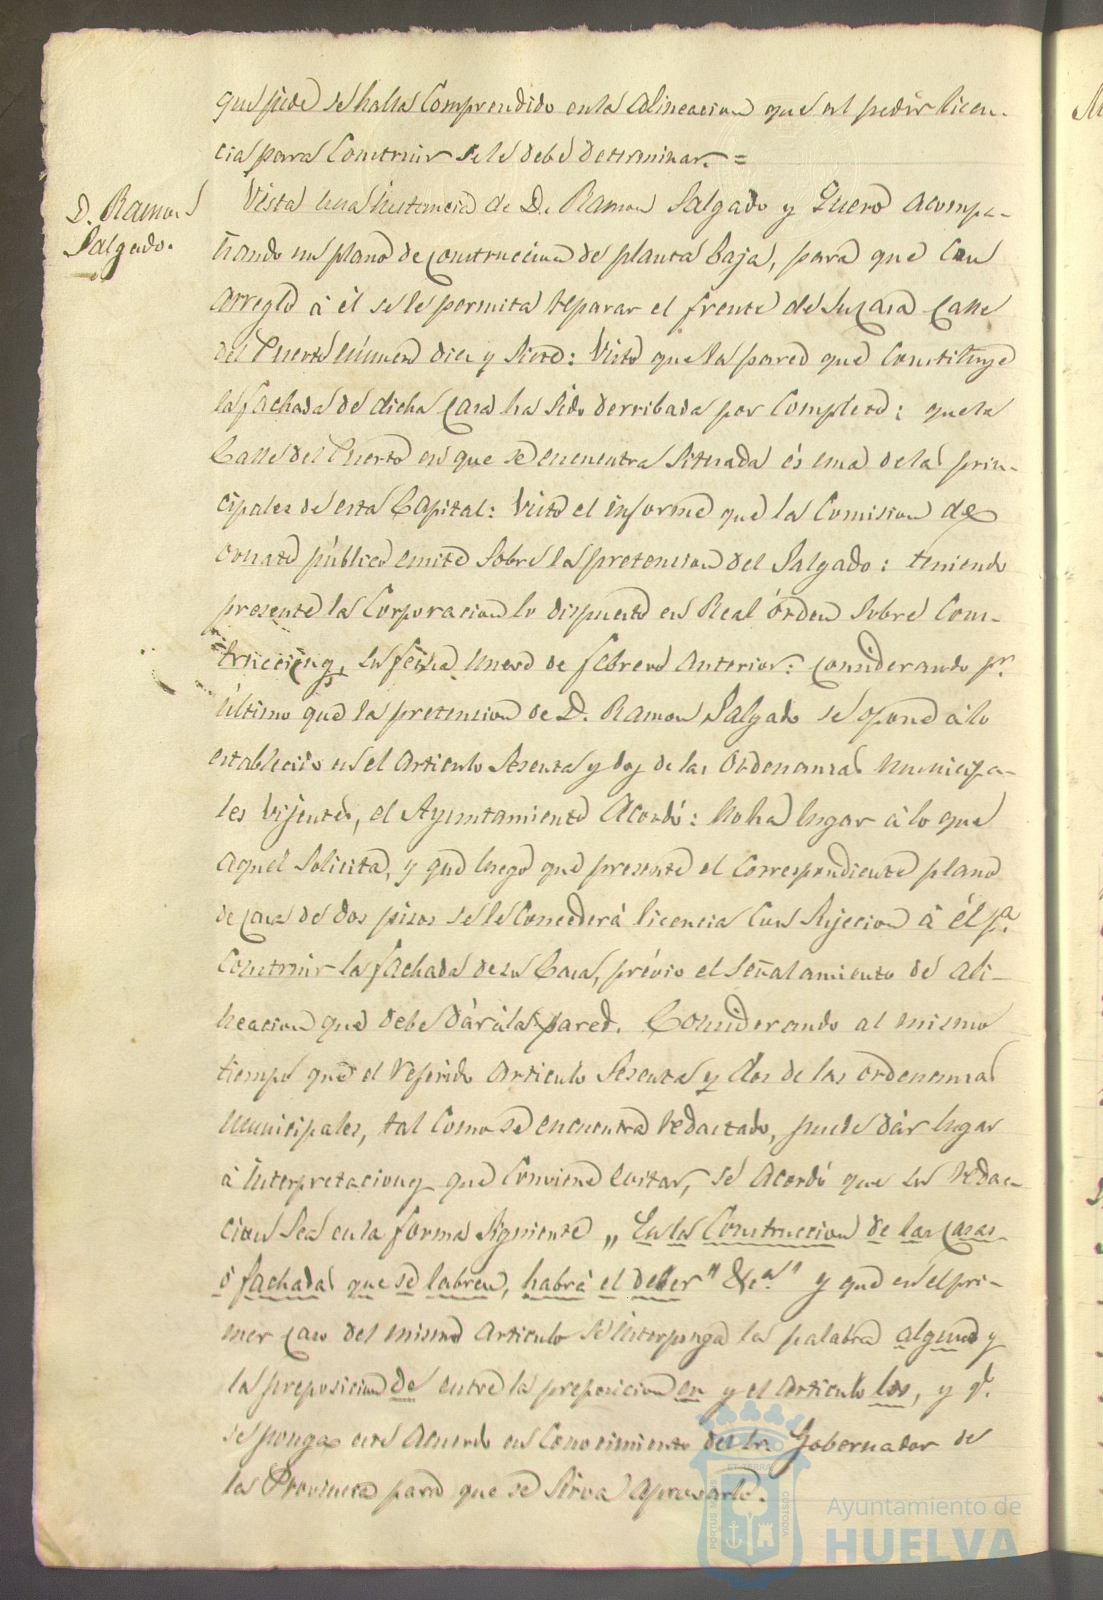 que pide se halla comprendido en la alineacion que al pedir licen-
cia para construir se le debe determinar. =
D. Ramon
Salgado.
Vista una instancia de D. Ramon Salgado y Quero acompa-
ñando un plano de construccion de planta baja, para que con
arreglo á él se le permita reparar el frente de su casa calle
del Puerto número diez y siete: Visto que la pared que constituye
la fachada de dicha casa ha sido derribada por completo: que la
Calle del Puerto en que se encuentra situada és una de las prin-
cipales de esta Capital: Visto el informe que la Comision de
ornato público emite sobre la pretension del Salgado: teniendo
presente la Corporacion lo dispuesto en Real órden sobre cons-
trucciones, su fecha nueve de febrero anterior: considerando pr.
último que la pretension de D. Ramon Salgado se opone á lo
establecido en el articulo sesenta y dos de las Ordenanzas municipa-
les vijentes, el Ayuntamiento acordó: No ha lugar á lo que
aquel solicita, y que luego que presente el correspondiente plano
de casa de dos pisos se le concederá licencia con sujecion á él pa.
construir la fachada de su casa, prévio el señalamiento de ali-
neacion que debe dár á la pared. Considerando al mismo
tiempo que el referido articulo sesenta y dos de las ordenanzas
municipales, tal como se encuentra redactado, puede dár lugar
á interpretaciones que conviene evitar, se acordó que su redac-
cion sea en la forma siguiente „ En la construccion de las casas
ó fachadas que se labren, habrá el deber" &a." y que en el pri-
mer caso del mismo articulo se interponga la palabra alguno y
la preposicion de entre la preposicion en y el articulo los, y q.
se ponga este acuerdo en conocimiento del Sr. Gobernador de
la Provincia para que se sirva aprobarlo.
Ayuntamiento de
HUELVA